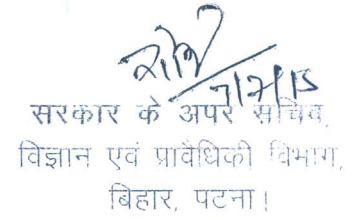 7/7/15
सरकार के अपर सचिव,
विज्ञान एवं प्रावैधिकी विभाग,
बिहार, पटना।